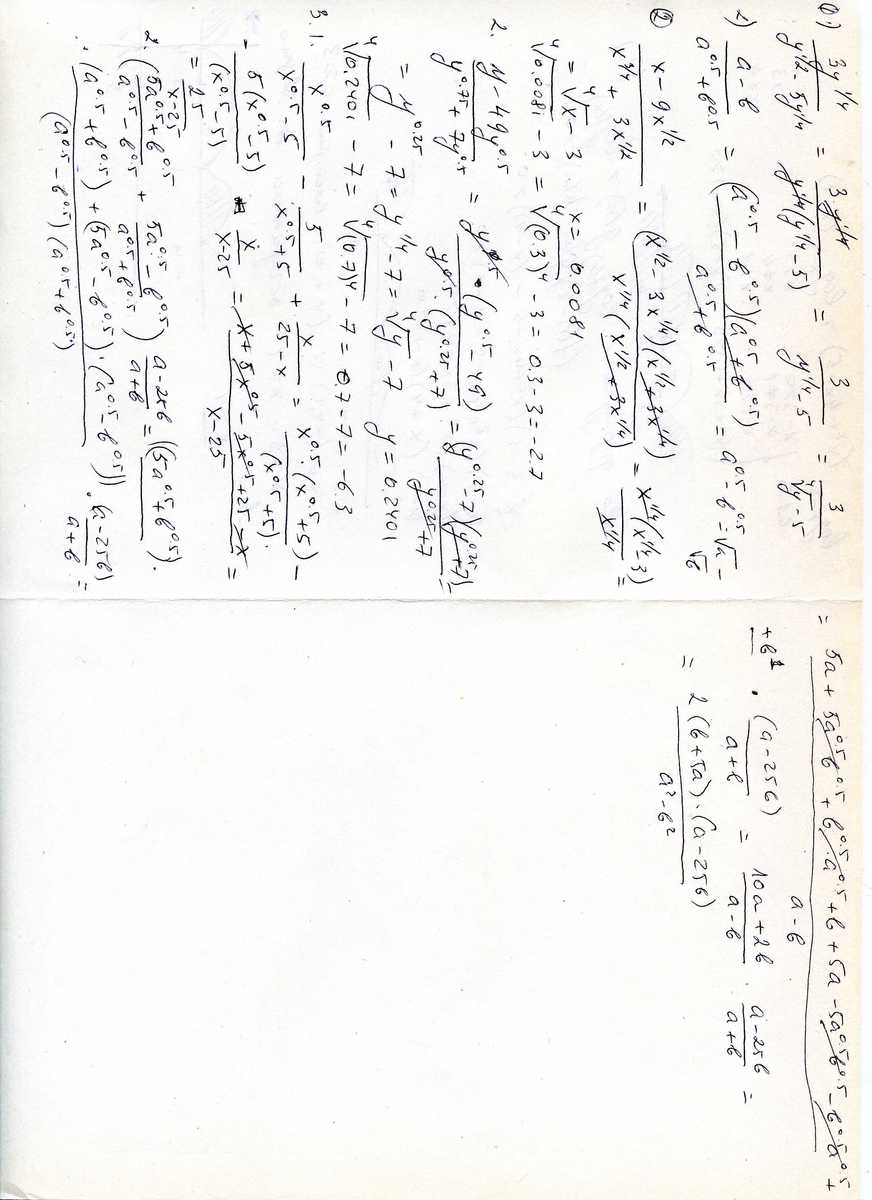 1) 3y^1/4 / (y^1/2 - 5y^1/4) = 3y^1/4 / (y^1/4(y^1/4 - 5)) = 3 / (y^1/4 - 5) = 3 / (⁴√y - 5)
2) (a - b) / (a^0.5 + b^0.5) = (a^0.5 - b^0.5)(a^0.5 + b^0.5) / (a^0.5 + b^0.5) = a^0.5 - b^0.5 = √a -
√b
② (x - 9x^1/2) / (x^3/4 + 3x^1/2) = (x^1/2 - 3x^1/4)(x^1/2 + 3x^1/4) / (x^1/4(x^1/2 + 3x^1/4)) = x^1/4(x^1/4 - 3) / x^1/4 =
= ⁴√x - 3 x = 0.0081
⁴√0.0081 - 3 = ⁴√(0.3)^4 - 3 = 0.3 - 3 = -2.7
2. (y - 49y^0.5) / (y^0.75 + 7y^0.5) = y^0.5 · (y^0.5 - 49) / (y^0.5 · (y^0.25 + 7)) = (y^0.25 - 7)(y^0.25 + 7) / (y^0.25 + 7) =
= y^0.25 - 7 = y^1/4 - 7 = ⁴√y - 7 y = 0.2401
⁴√0.2401 - 7 = ⁴√(0.7)^4 - 7 = 0.7 - 7 = -6.3
3. 1. x^0.5 / (x^0.5 - 5) - 5 / (x^0.5 + 5) + x / (25 - x) = x^0.5 · (x^0.5 + 5) - / (x^0.5 + 5) ·
- 5(x^0.5 - 5) / (x^0.5 - 5) - x / (x - 25) = (x + 5x^0.5 - 5x^0.5 + 25 - x) / (x - 25) =
= 25 / (x - 25)
2. ((5a^0.5 + b^0.5) / (a^0.5 - b^0.5) + (5a^0.5 - b^0.5) / (a^0.5 + b^0.5)) (a - 25b) / (a + b) = ((5a^0.5 + b^0.5) ·
· (a^0.5 + b^0.5) + (5a^0.5 - b^0.5) · (a^0.5 - b^0.5)) / ((a^0.5 - b^0.5)(a^0.5 + b^0.5)) · (a - 25b) / (a + b) =
= 5a + 5a^0.5b^0.5 + b^0.5 · a^0.5 + b + 5a - 5a^0.5b^0.5 - b^0.5a^0.5 + / (a - b)
+ b · (a - 25b) / (a + b) = (10a + 2b) / (a - b) · (a - 25b) / (a + b) =
= 2(b + 5a) · (a - 25b) / (a² - b²)